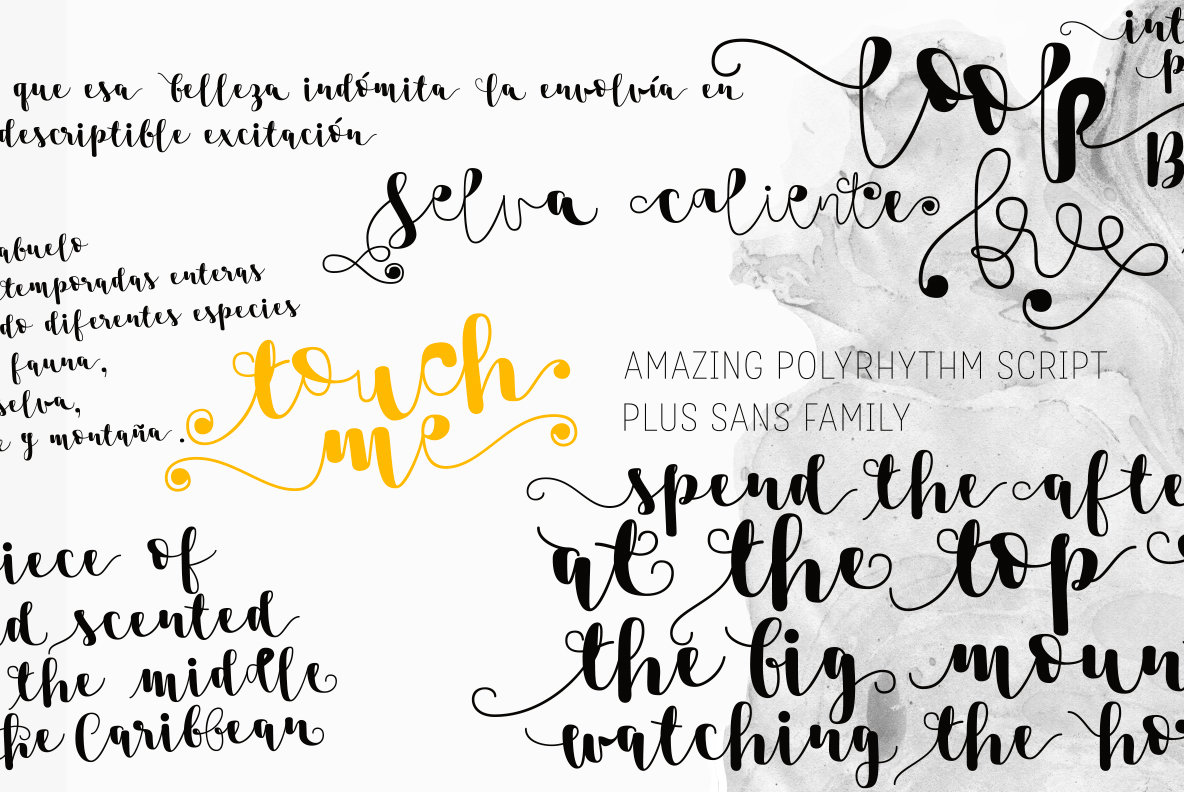 que esa belleza indómita la envolvía en
descriptible excitación
loop
int
p
B
Selva caliente
bre
abuelo
temporadas enteras
do diferentes especies
fauna,
selva,
y montaña.
touch
me
AMAZING POLYRHYTHM SCRIPT
PLUS SANS FAMILY
spend the afte
at the top
the big moun
watching the ho
piece of
d scented
the middle
the Caribbean